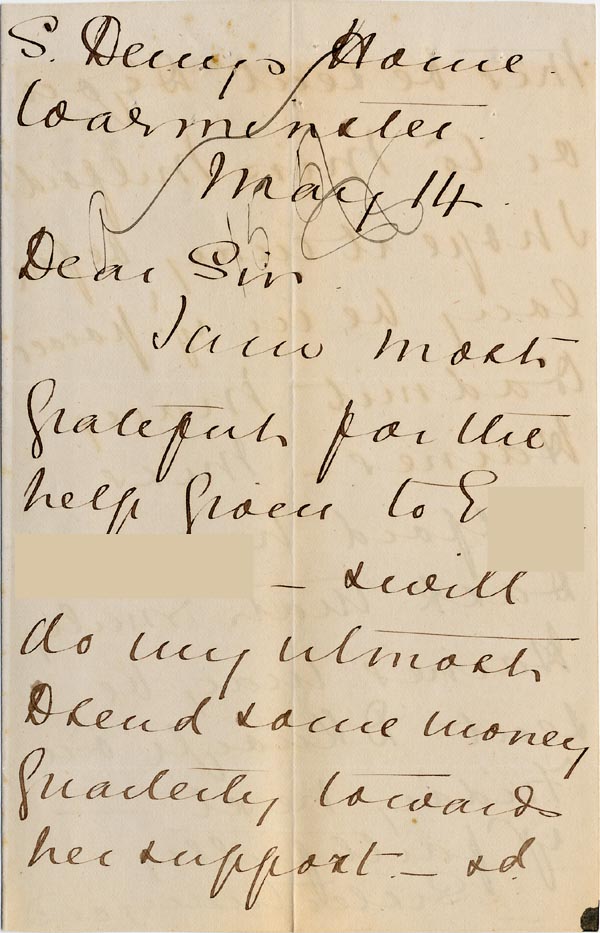 S. Denys Home
Warminster.
May 14.
Dear Sir
I am most
grateful for the
help given to E
– & will
do my utmost
to send some money
Quarterly towards
her support – sd